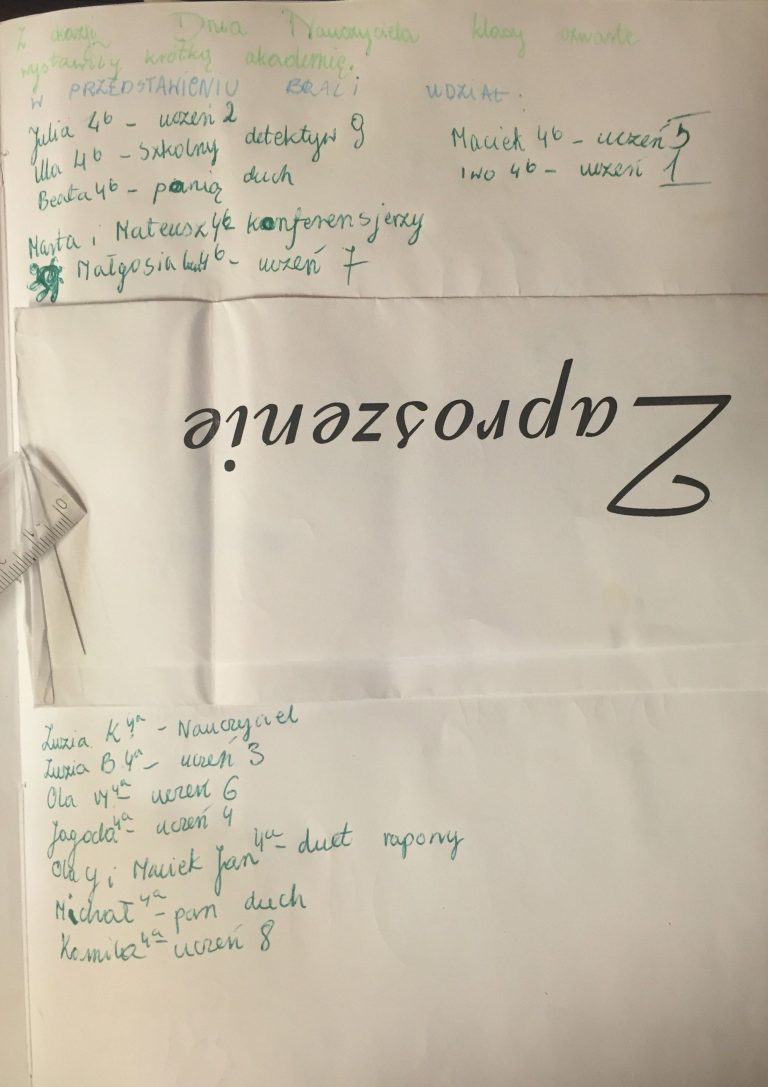 Z okazji Dnia Nauczyciela klasy czwarte
wystawiły krótką akademię.
W PRZEDSTAWIENIU BRALI UDZIAŁ:
Julia 4b - uczeń 2
Ula 4b - Szkolny detektyw 9
Beata 4b - panią duch
Maciek 4b - uczeń 5
Iwo 4b - uczeń 1
Marta i Mateusz 4b konferensjerzy
Małgosia 4b - uczeń 7
Zaproszenie
10
Zuzia K 4a - Nauczyciel
Zuzia B 4a - uczeń 3
Ola W 4a - uczeń 6
Jagoda 4a - uczeń 4
Ola y i Maciek Jan 4a - duet rapowy
Michał 4a - pan duch
Kamila 4a - uczeń 8